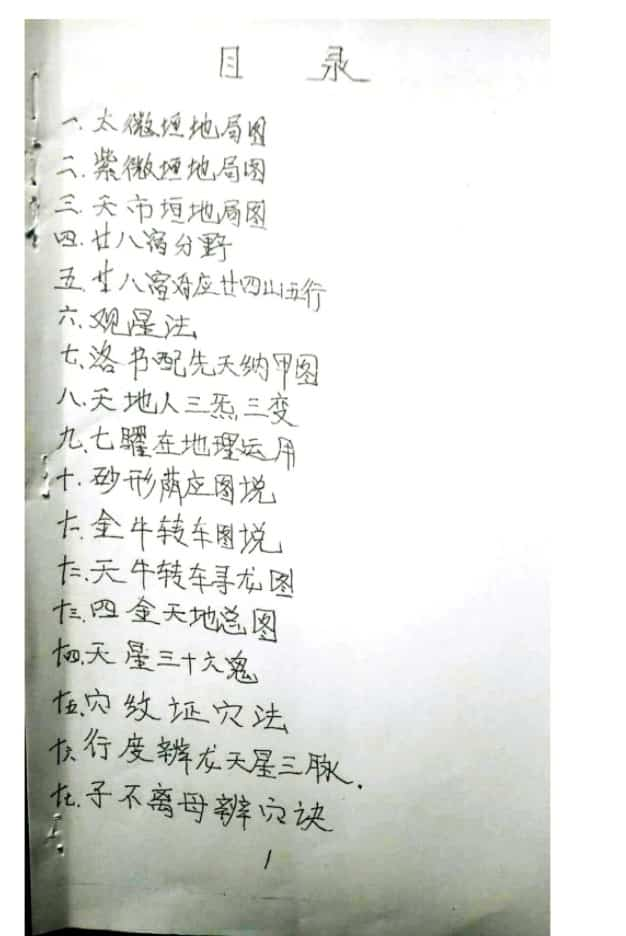 目 录
一.太微垣地局图
二.紫微垣地局图
三.天市垣地局图
四.廿八宿分野
五.廿八宿对应廿四山五行
六.观星法
七.洛书配先天纳甲图
八.天地人三炁三变
九.七曜在地理运用
十.砂形荫应图说
十一.金牛转车图说
十二.天牛转车寻龙图
十三.四金天地总图
十四.天星三十六鬼
十五.穴纹证穴法
十六.行度辨龙天星三脉.
十七.子不离母辨穴诀
1